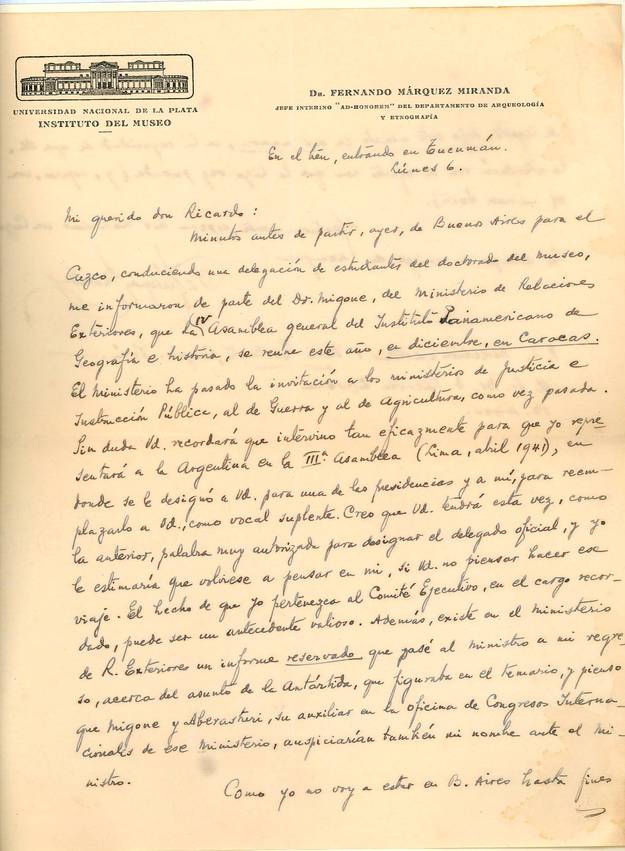 UNIVERSIDAD NACIONAL DE LA PLATA
INSTITUTO DEL MUSEO
DR. FERNANDO MÁRQUEZ MIRANDA
JEFE INTERINO "AD-HONOREM" DEL DEPARTAMENTO DE ARQUEOLOGÍA
Y ETNOGRAFÍA
En el tren, entrando en Tucumán.
Lunes 6.
Mi querido don Ricardo:
Minutos antes de partir, ayer, de Buenos Aires para el
Cuzco, conduciendo una delegación de estudiantes del doctorado del museo,
me informaron de parte del Dr. Migone, del Ministerio de Relaciones
Exteriores, que la IV Asamblea general del Instituto Panamericano de
Geografía e historia, se reune este año, en diciembre, en Caracas.
El Ministerio ha pasado la invitación a los ministerios de Justicia e
Instrucción Pública, al de Guerra y al de Agricultura, como vez pasada.
Sin duda Vd. recordará que intervino tan eficazmente para que yo repre-
sentará a la Argentina en la IIIª Asamblea (Lima, abril 1941), en
donde se le designó a Vd. para una de las presidencias y a mí, para reem-
plazarlo a Vd., como vocal suplente. Creo que Vd. tendrá esta vez, como
la anterior, palabra muy autorizada para designar el delegado oficial, y yo
le estimaría que volviese a pensar en mi, si Vd. no piensa hacer ese
viaje. El hecho de que yo pertenezca al Comité Ejecutivo, en el cargo recor-
dado, puede ser un antecedente valioso. Además, existe en el Ministerio
de R. Exteriores un informe reservado que pasé al Ministro a mi regre-
so, acerca del asunto de la Antártida, que figuraba en el temario, y pienso
que Migone y Aberastury, su auxiliar en la oficina de Congresos Interna-
cionales de ese Ministerio, auspiciarían también mi nombre ante el Mi-
nistro.
Como yo no voy a estar en B. Aires hasta fines